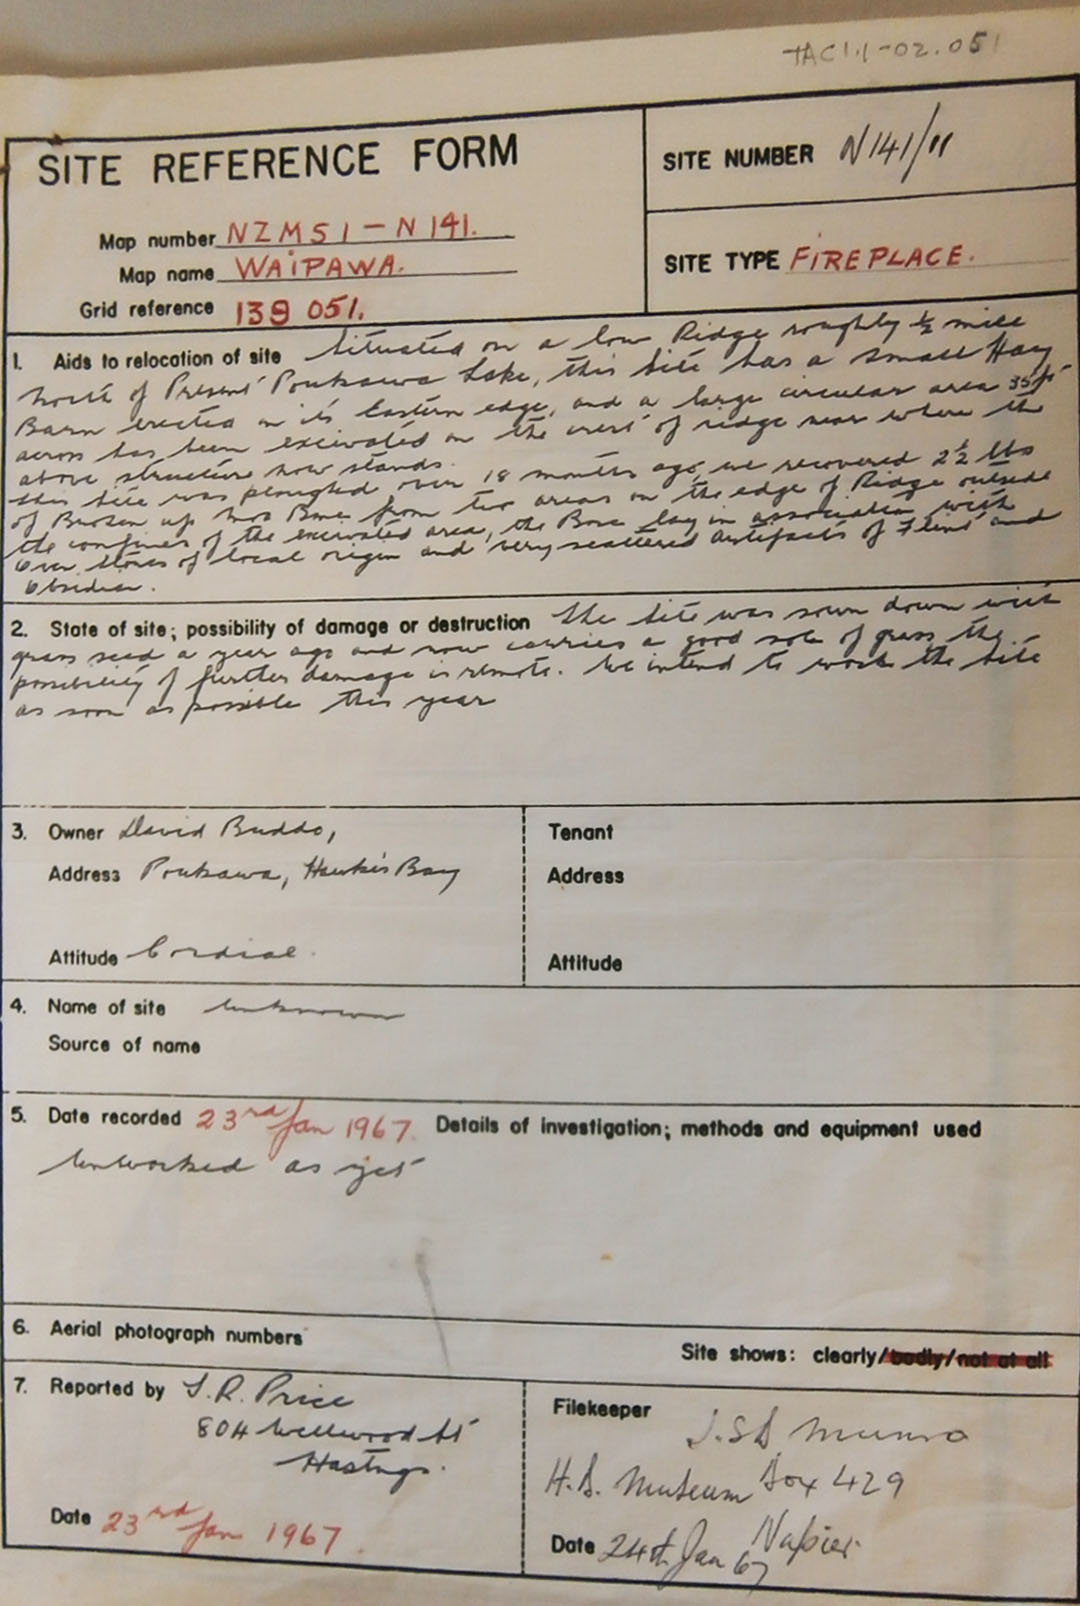 TAC1.1-02.051
SITE REFERENCE FORM
SITE NUMBER N141/11
Map number NZMS1-N141.
Map name WAIPAWA.
Grid reference 139 051.
SITE TYPE FIREPLACE.
1. Aids to relocation of site Situated on a low Ridge roughly ½ mile
North of Present Poukawa Lake, this Site has a small Hay
Barn erected on its Eastern edge, and a large circular area 35ft
across has been excavated on the crest of ridge near where the
above structure now stands.
this Site was ploughed over 18 months ago, we recovered 2½ lbs
of Broken up Moa Bone from two areas on the edge of Ridge outside
the confines of the excavated area, the Bone lay in association with
Oven stones of local origin and very scattered Artifacts of Flint and
Obsidian.
2. State of site; possibility of damage or destruction The Site was sown down with
grass seed a year ago and now carries a good sole of grass the
possibility of further damage is remote. We intend to work the Site
as soon as possible this year
3. Owner David Buddo,
Address Poukawa, Hawkes Bay
Attitude Cordial.
Tenant
Address
Attitude
4. Name of site Unknown
Source of name
5. Date recorded 23rd Jan 1967. Details of investigation; methods and equipment used
Unworked as yet
6. Aerial photograph numbers
Site shows: clearly/badly/not at all
7. Reported by T.R. Price
804 Wellwood St
Hastings.
Date 23rd Jan 1967.
Filekeeper J.S.D Munro
H.B. Museum Box 429
Napier.
Date 24th Jan 67